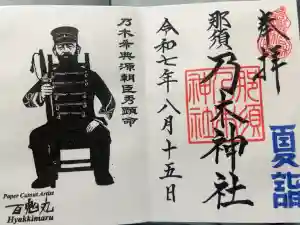 奉拝
那須
乃木神社
那須
乃木
神社
夏詣
令和七年八月十五日
乃木希典源朝臣秀顕命
Paper Cutout Artist
百鬼丸
Hyakkimaru